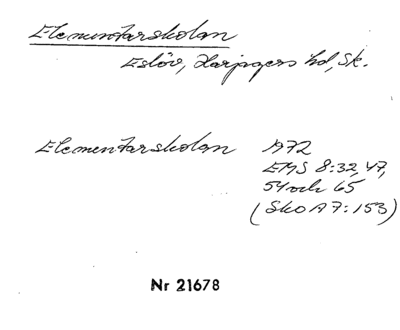 Elementarskolan
Eslöv, Harjagers hd, Sk.
Elementarskolan 1972
EMS 8:32, 47,
54 och 65
(Sko A 7:153)
Nr 21678